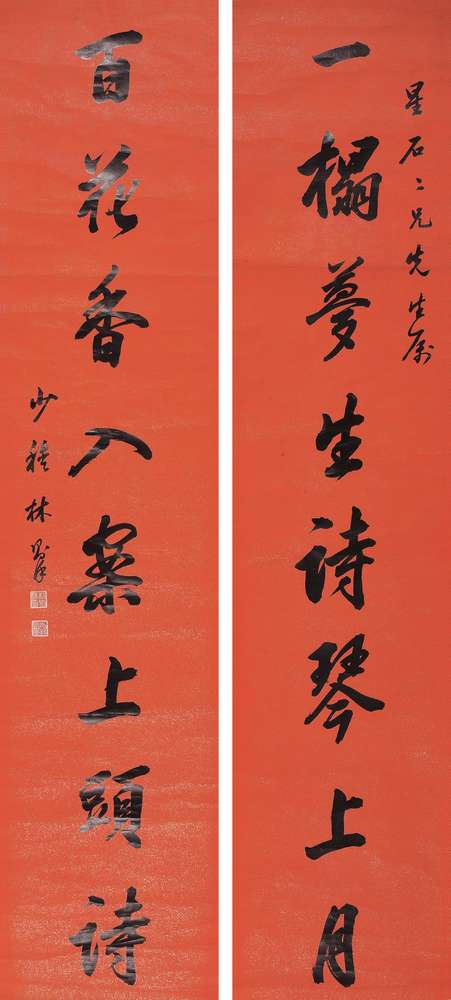 星石二兄先生属
一榻夢生詩琴上月
百花香入案上頭詩
少穆林則徐